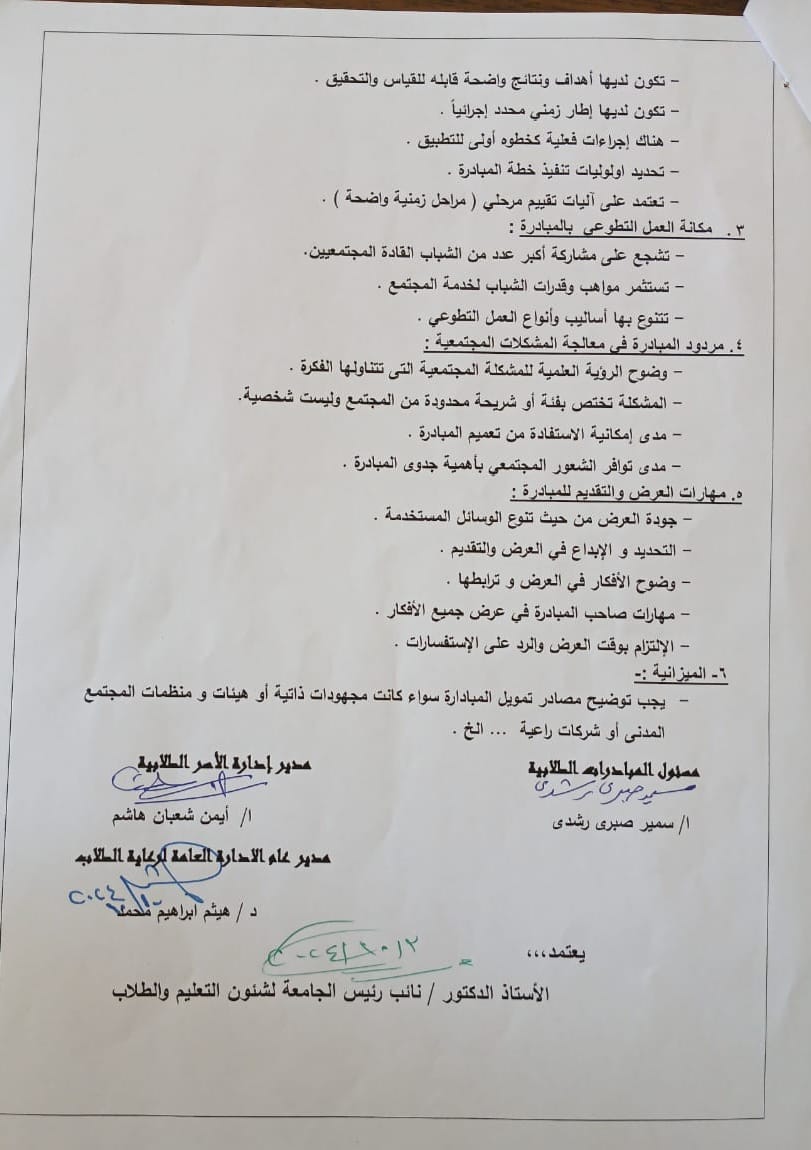 - تكون لديها أهداف ونتائج واضحة قابله للقياس والتحقيق .
- تكون لديها إطار زمني محدد إجرائياً .
- هناك إجراءات فعلية كخطوه أولى للتطبيق .
- تحديد اولوليات تنفيذ خطة المبادرة .
- تعتمد على آليات تقييم مرحلي ( مراحل زمنية واضحة ) .
٣. مكانة العمل التطوعي بالمبادرة :
- تشجع على مشاركة أكبر عدد من الشباب القادة المجتمعيين.
- تستثمر مواهب وقدرات الشباب لخدمة المجتمع .
- تتنوع بها أساليب وأنواع العمل التطوعي .
٤. مردود المبادرة في معالجة المشكلات المجتمعية :
- وضوح الرؤية العلمية للمشكلة المجتمعية التى تتناولها الفكرة .
- المشكلة تختص بفئة أو شريحة محدودة من المجتمع وليست شخصية.
- مدى إمكانية الاستفادة من تعميم المبادرة .
- مدى توافر الشعور المجتمعي بأهمية جدوى المبادرة .
٥. مهارات العرض والتقديم للمبادرة :
- جودة العرض من حيث تنوع الوسائل المستخدمة .
- التحديد و الإبداع في العرض والتقديم .
- وضوح الأفكار في العرض و ترابطها .
- مهارات صاحب المبادرة في عرض جميع الأفكار .
- الإلتزام بوقت العرض والرد على الإستفسارات .
٦- الميزانية :-
- يجب توضيح مصادر تمويل المبادارة سواء كانت مجهودات ذاتية أو هيئات و منظمات المجتمع
المدنى أو شركات راعية ... الخ .
مسئول المبادرات الطلابية
مدير إدارة الأسر الطلابية
سمير صبرى رشدى
ا/ سمير صبرى رشدى
ا/ أيمن شعبان هاشم
مدير عام الادارة العامة لرعاية الطلاب
٢٠٢٤
د / هيثم ابراهيم محمد
يعتمد،،،
الأستاذ الدكتور / نائب رئيس الجامعة لشئون التعليم والطلاب